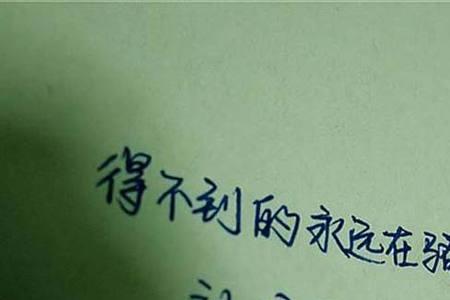 得不到的永远在